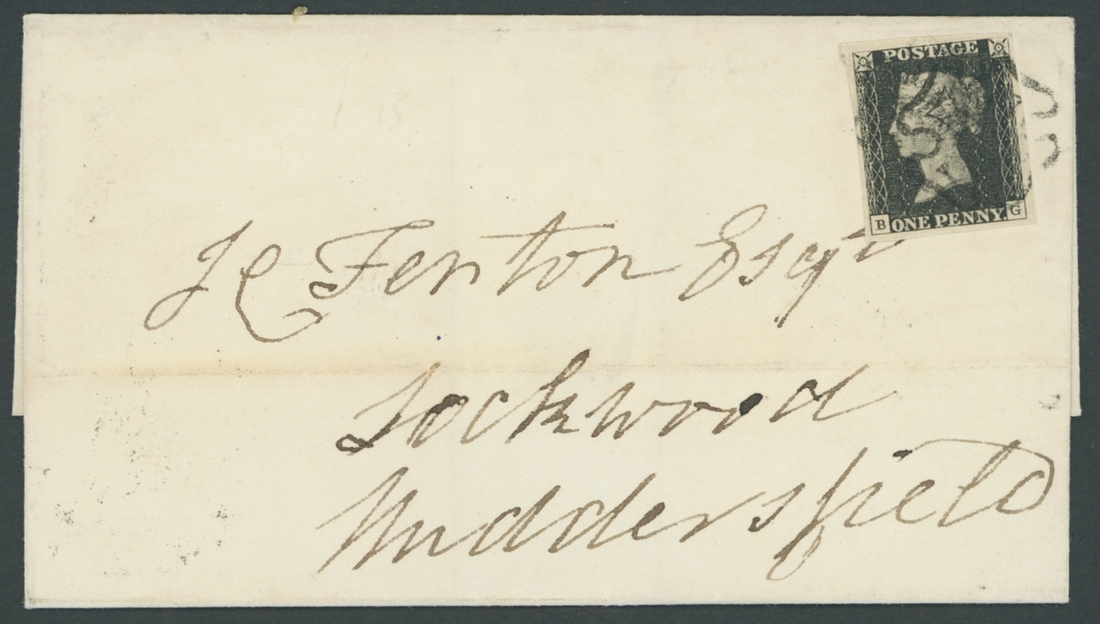 POSTAGE
B ONE PENNY G
J C Fenton Esqr
Lockwood
Huddersfield